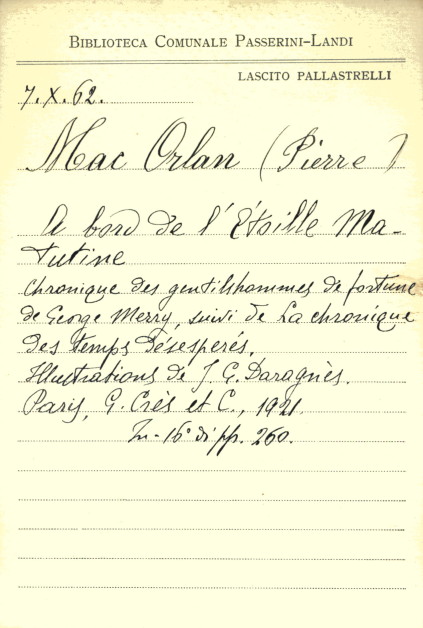 BIBLIOTECA COMUNALE PASSERINI-LANDI
LASCITO PALLASTRELLI
7.X.62.
Mac Orlan (Pierre)
A bord de l'Etoille Ma-
tutine
Chronique des gentilshommes de fortune
de George Merry, suivi de La chronique
des temps désesperés.
Illustrations de J. G. Daragnès.
Paris, G. Crès et C., 1921.
In-16° di pp. 260.